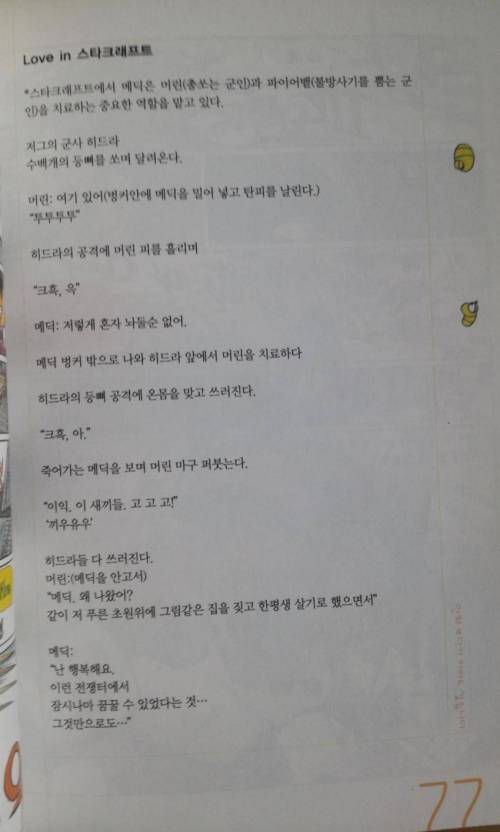 Love in 스타크래프트
*스타크래프트에서 메딕은 머린(총쏘는 군인)과 파이어뱃(불방사기를 뿜는 군
인)을 치료하는 중요한 역할을 맡고 있다.
저그의 군사 히드라
수백개의 등뼈를 쏘며 달려온다.
머린: 여기 있어(벙커안에 메딕을 밀어 넣고 탄피를 날린다.)
"투투투투"
히드라의 공격에 머린 피를 흘리며
"크흑, 윽"
메딕: 저렇게 혼자 놔둘순 없어.
메딕 벙커 밖으로 나와 히드라 앞에서 머린을 치료하다
히드라의 등뼈 공격에 온몸을 맞고 쓰러진다.
"크흑, 아."
죽어가는 메딕을 보며 머린 마구 퍼붓는다.
"이익. 이 새끼들. 고 고 고!"
'끼우유우'
히드라들 다 쓰러진다.
머린:(메딕을 안고서)
"메딕. 왜 나왔어?
같이 저 푸른 초원위에 그림같은 집을 짓고 한평생 살기로 했으면서"
메딕:
"난 행복해요.
이런 전쟁터에서
잠시나마 꿈꿀 수 있었다는 것…
그것만으로도…"
77